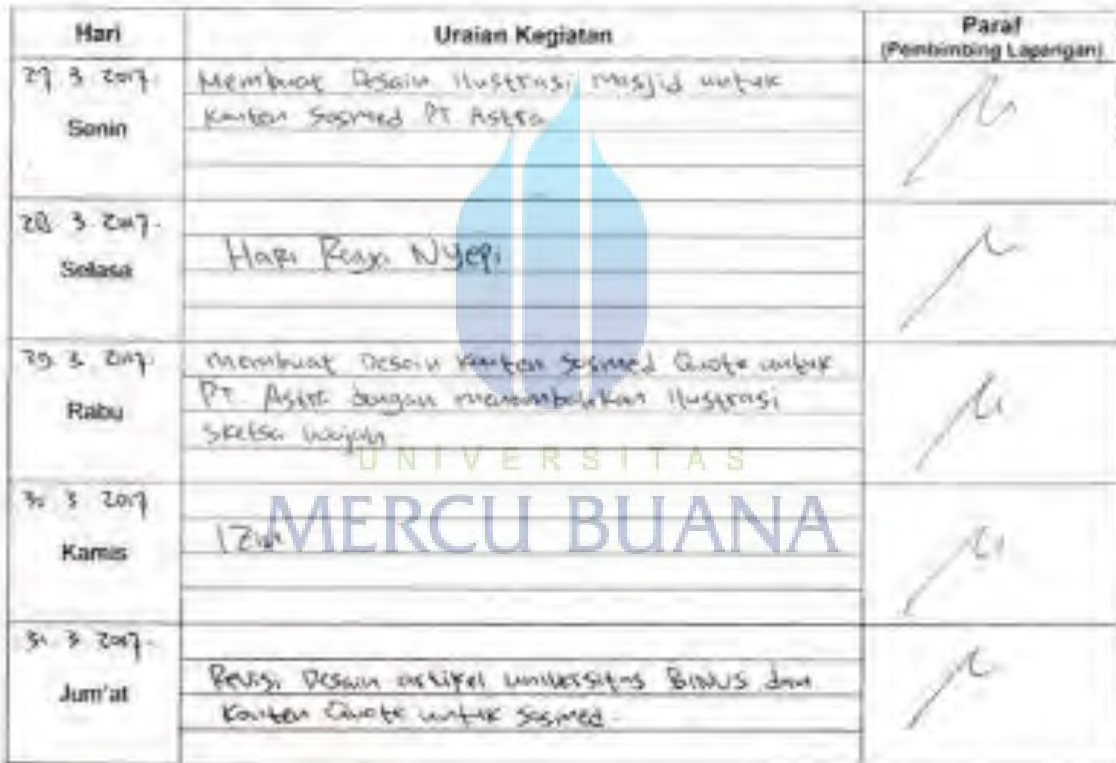 Hari Uraian Kegiatan Paraf
(Pembimbing Lapangan)
27.3.2017.
Senin
Membuat Desain Ilustrasi Masjid untuk
Konten Sosmed PT Astra
28.3.2017.
Selasa
Hari Raya Nyepi
29.3.2017.
Rabu
Membuat Desain Konten Sosmed Quote untuk
PT Astra dengan menambahkan Ilustrasi
Sketsa wajah
UNIVERSITAS
MERCU BUANA
30 3 2017
Kamis
Izin
31.3.2017.
Jum'at
Revisi Desain artikel universitas BINUS dan
Konten Quote untuk sosmed.